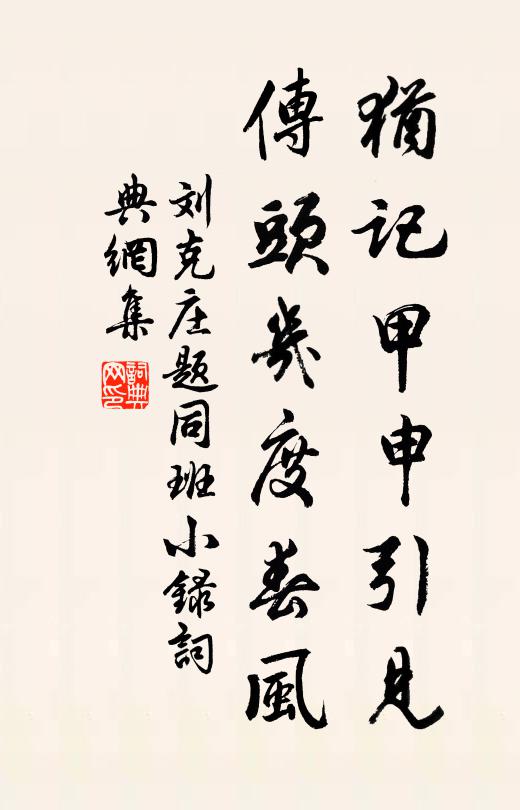 猶記甲申引見
傳頭幾度春風
刘克庄題同班小録詞
典網集
詞典网印